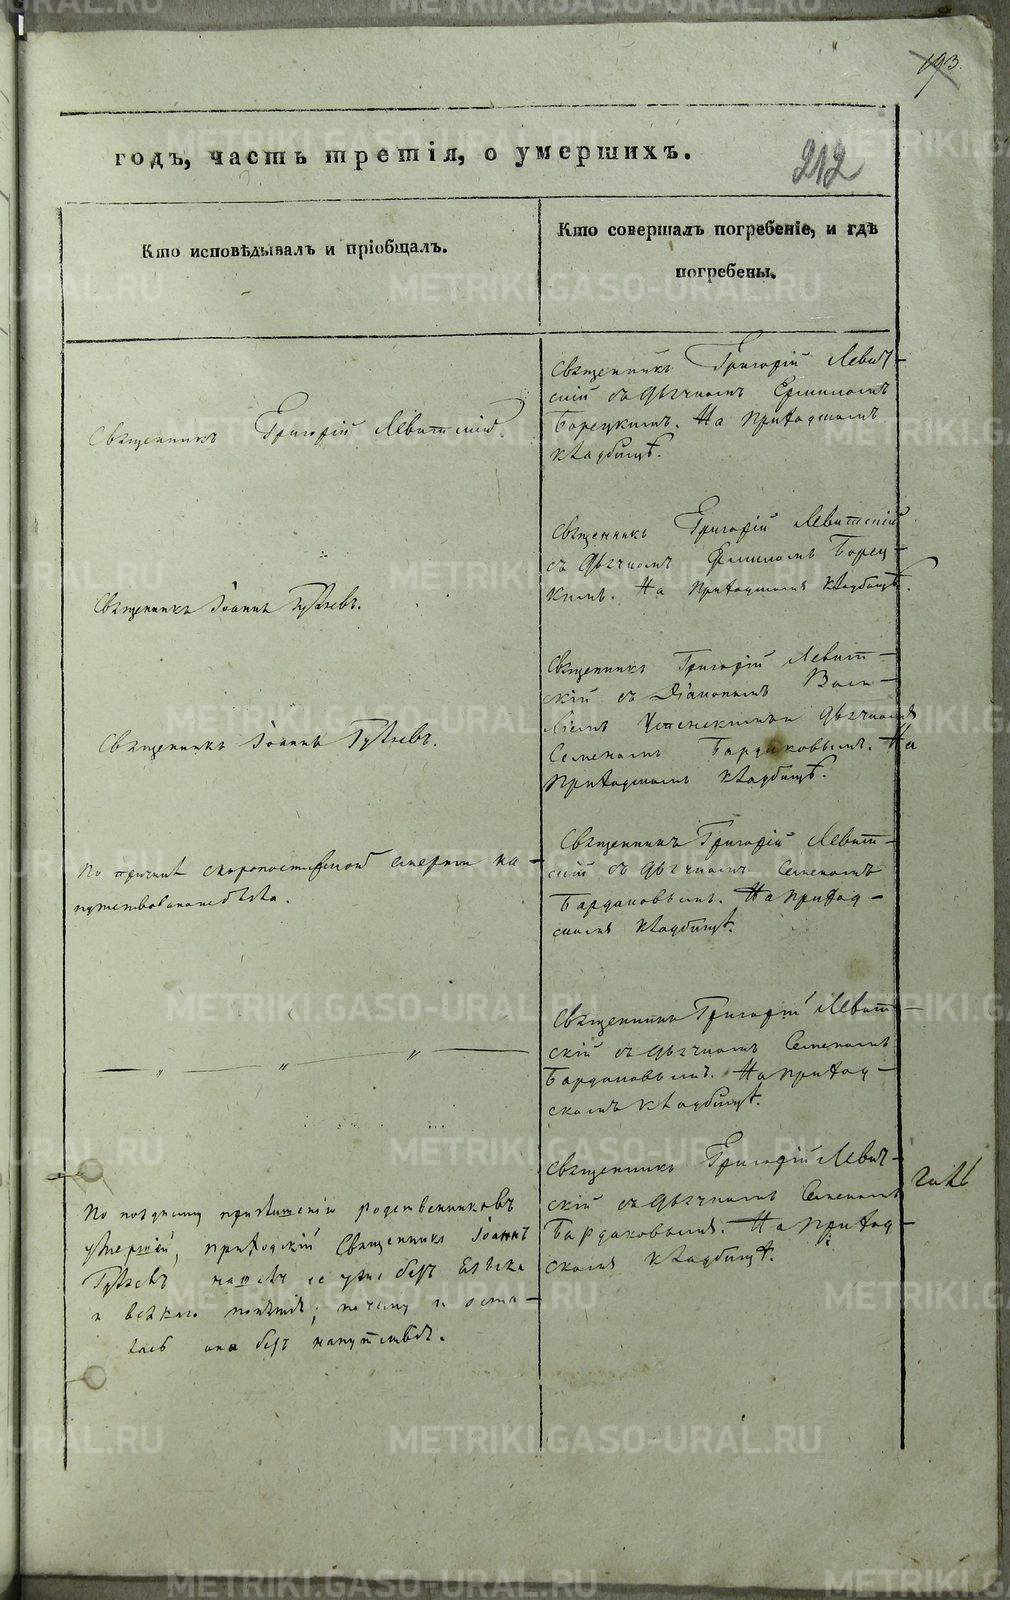 193.
годъ, часть третія, о умершихъ.
212
Кто исповѣдывалъ и пріобщалъ.
Кто совершалъ погребеніе, и гдѣ
погребены.
Священникъ Григорій Левитскій.
Священникъ Григорій Левит-
скій съ дьячкомъ
Борецкимъ. На приходскомъ
кладбищѣ.
Священникъ Іоаннъ
Священникъ Григорій Левитскій
съ дьячкомъ Борец-
кимъ. На приходскомъ кладбищѣ.
Священникъ Іоаннъ
Священникъ Григорій Левит-
скій съ Діакономъ Васи-
ліемъ Успенскимъ и дьячкомъ
Семеномъ Бардаковымъ. На
приходскомъ кладбищѣ.
По причинѣ скоропостижной смерти на-
путствована не была.
Священникъ Григорій Левит-
скій съ дьячкомъ Семеномъ
Бардаковымъ. На приход-
скомъ кладбищѣ.
— „ — „ — „ —
Священникъ Григорій Левит-
скій съ дьячкомъ Семеномъ
Бардаковымъ. На приход-
скомъ кладбищѣ.
По позднему приглашенію родственниковъ
умершей, приходскій Священникъ Іоаннъ
нашелъ ее уже безъ языка
и всякаго понятія; почему и оста-
лась она безъ напутствія.
Священникъ Григорій Левит-
скій съ дьячкомъ Семеномъ
Бардаковымъ. На приход-
скомъ кладбищѣ.
METRIKI.GASO-URAL.RU